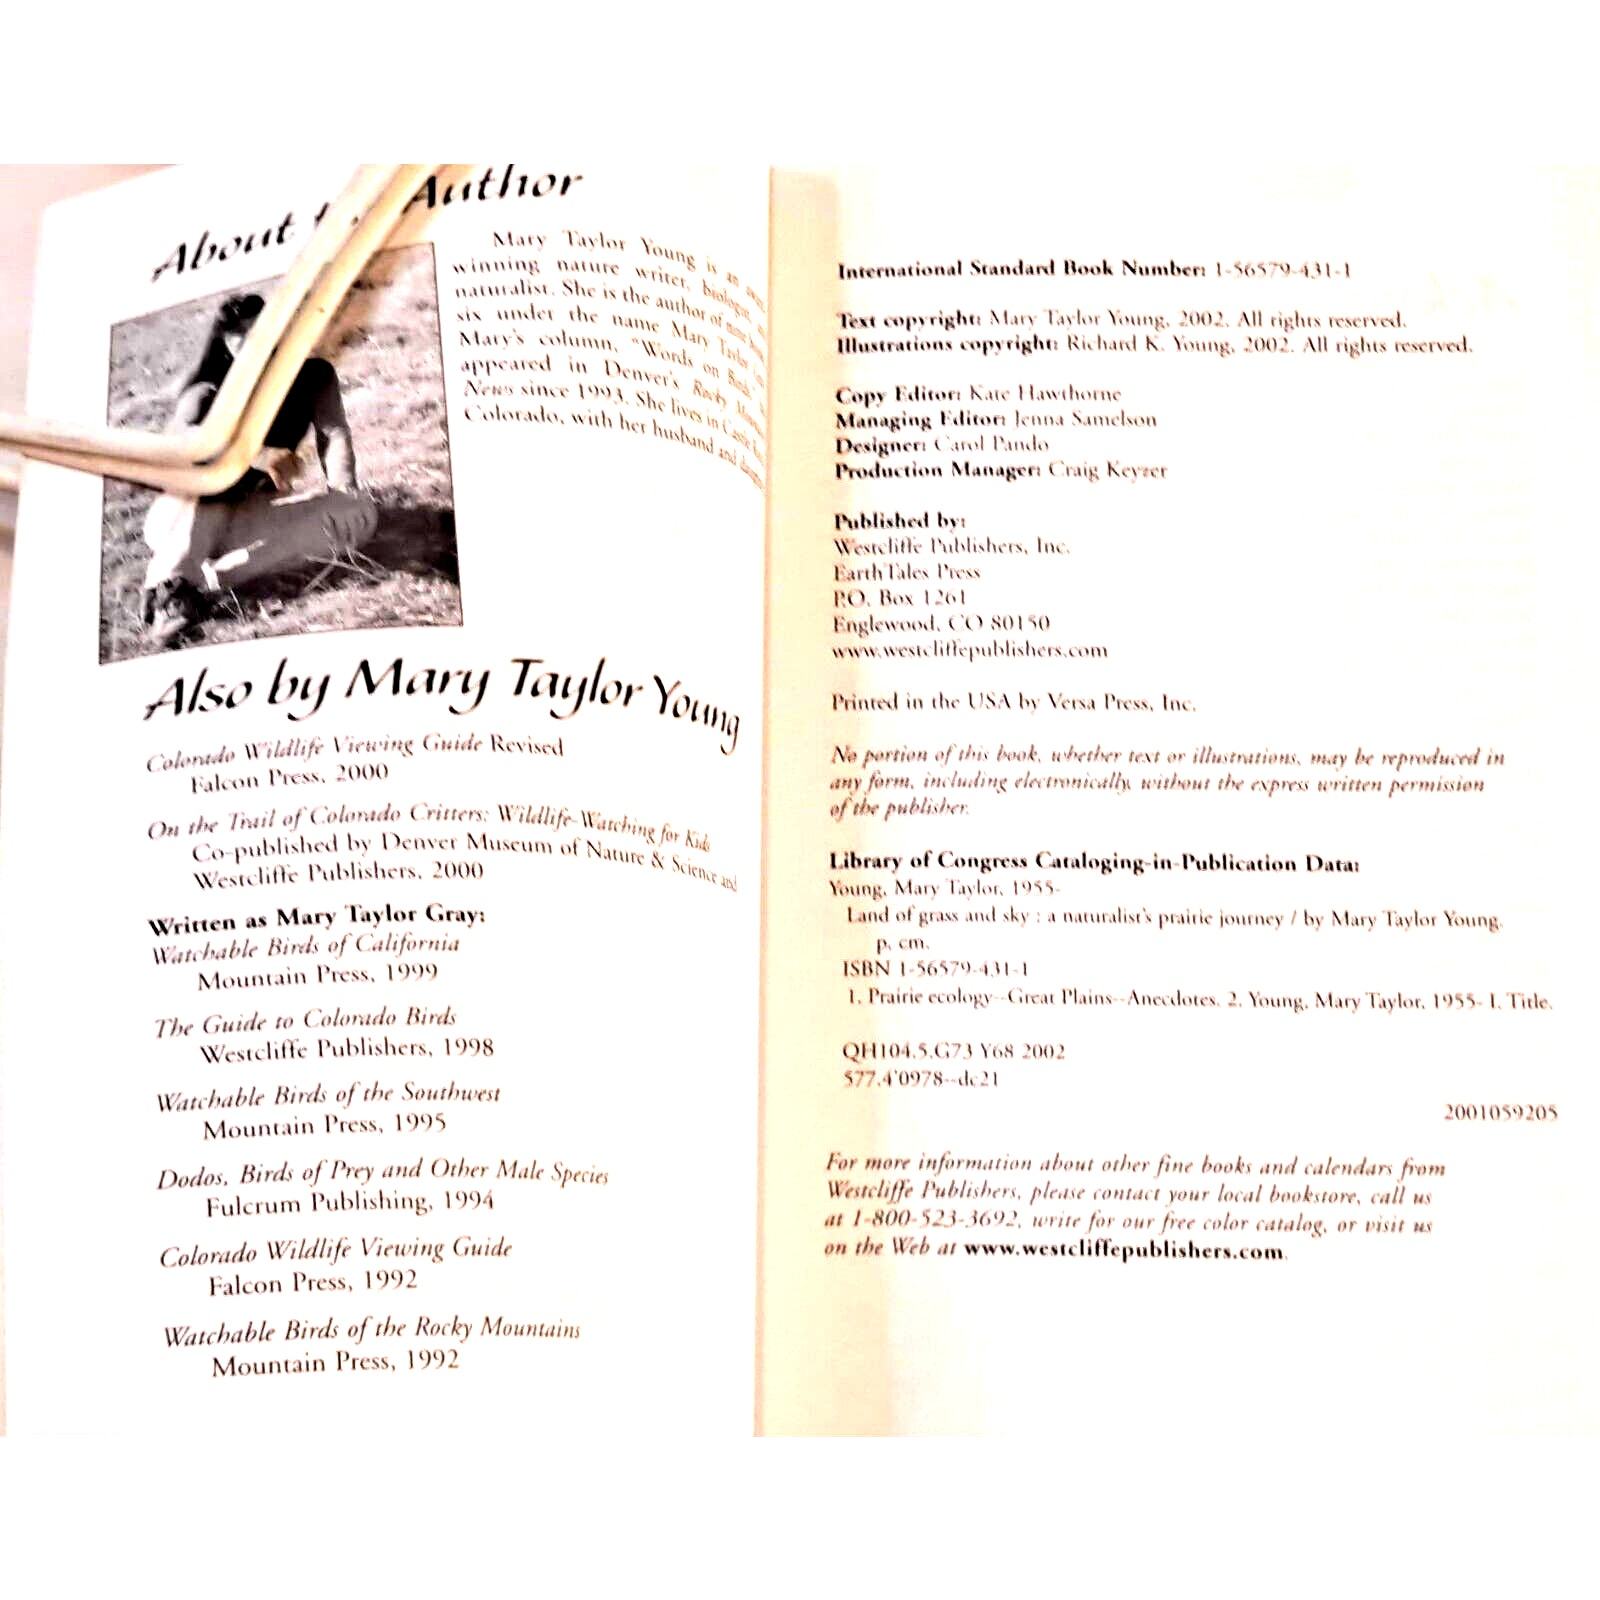 About Author
Mary Taylor Young is an
winning nature writer, biologist,
naturalist. She is the author of
six under the name Mary Taylor
Mary's column, "Words on Birds,"
appeared in Denver's Rocky
News since 1993. She lives in Castle
Colorado, with her husband and
Also by Mary Taylor Young
Colorado Wildlife Viewing Guide Revised
Falcon Press, 2000
On the Trail of Colorado Critters: Wildlife-Watching for Kids
Co-published by Denver Museum of Nature & Science and
Westcliffe Publishers, 2000
Written as Mary Taylor Gray:
Watchable Birds of California
Mountain Press, 1999
The Guide to Colorado Birds
Westcliffe Publishers, 1998
Watchable Birds of the Southwest
Mountain Press, 1995
Dodos, Birds of Prey and Other Male Species
Fulcrum Publishing, 1994
Colorado Wildlife Viewing Guide
Falcon Press, 1992
Watchable Birds of the Rocky Mountains
Mountain Press, 1992
International Standard Book Number: 1-56579-431-1
Text copyright: Mary Taylor Young, 2002. All rights reserved.
Illustrations copyright: Richard K. Young, 2002. All rights reserved.
Copy Editor: Kate Hawthorne
Managing Editor: Jenna Samelson
Designer: Carol Pando
Production Manager: Craig Keyzer
Published by:
Westcliffe Publishers, Inc.
EarthTales Press
P.O. Box 1261
Englewood, CO 80150
www.westcliffepublishers.com
Printed in the USA by Versa Press, Inc.
No portion of this book, whether text or illustrations, may be reproduced in
any form, including electronically, without the express written permission
of the publisher.
Library of Congress Cataloging-in-Publication Data:
Young, Mary Taylor, 1955-
Land of grass and sky : a naturalist's prairie journey / by Mary Taylor Young.
p. cm.
ISBN 1-56579-431-1
1. Prairie ecology--Great Plains--Anecdotes. 2. Young, Mary Taylor, 1955- I. Title.
QH104.5.G73 Y68 2002
577.4'0978--dc21
2001059205
For more information about other fine books and calendars from
Westcliffe Publishers, please contact your local bookstore, call us
at 1-800-523-3692, write for our free color catalog, or visit us
on the Web at www.westcliffepublishers.com.